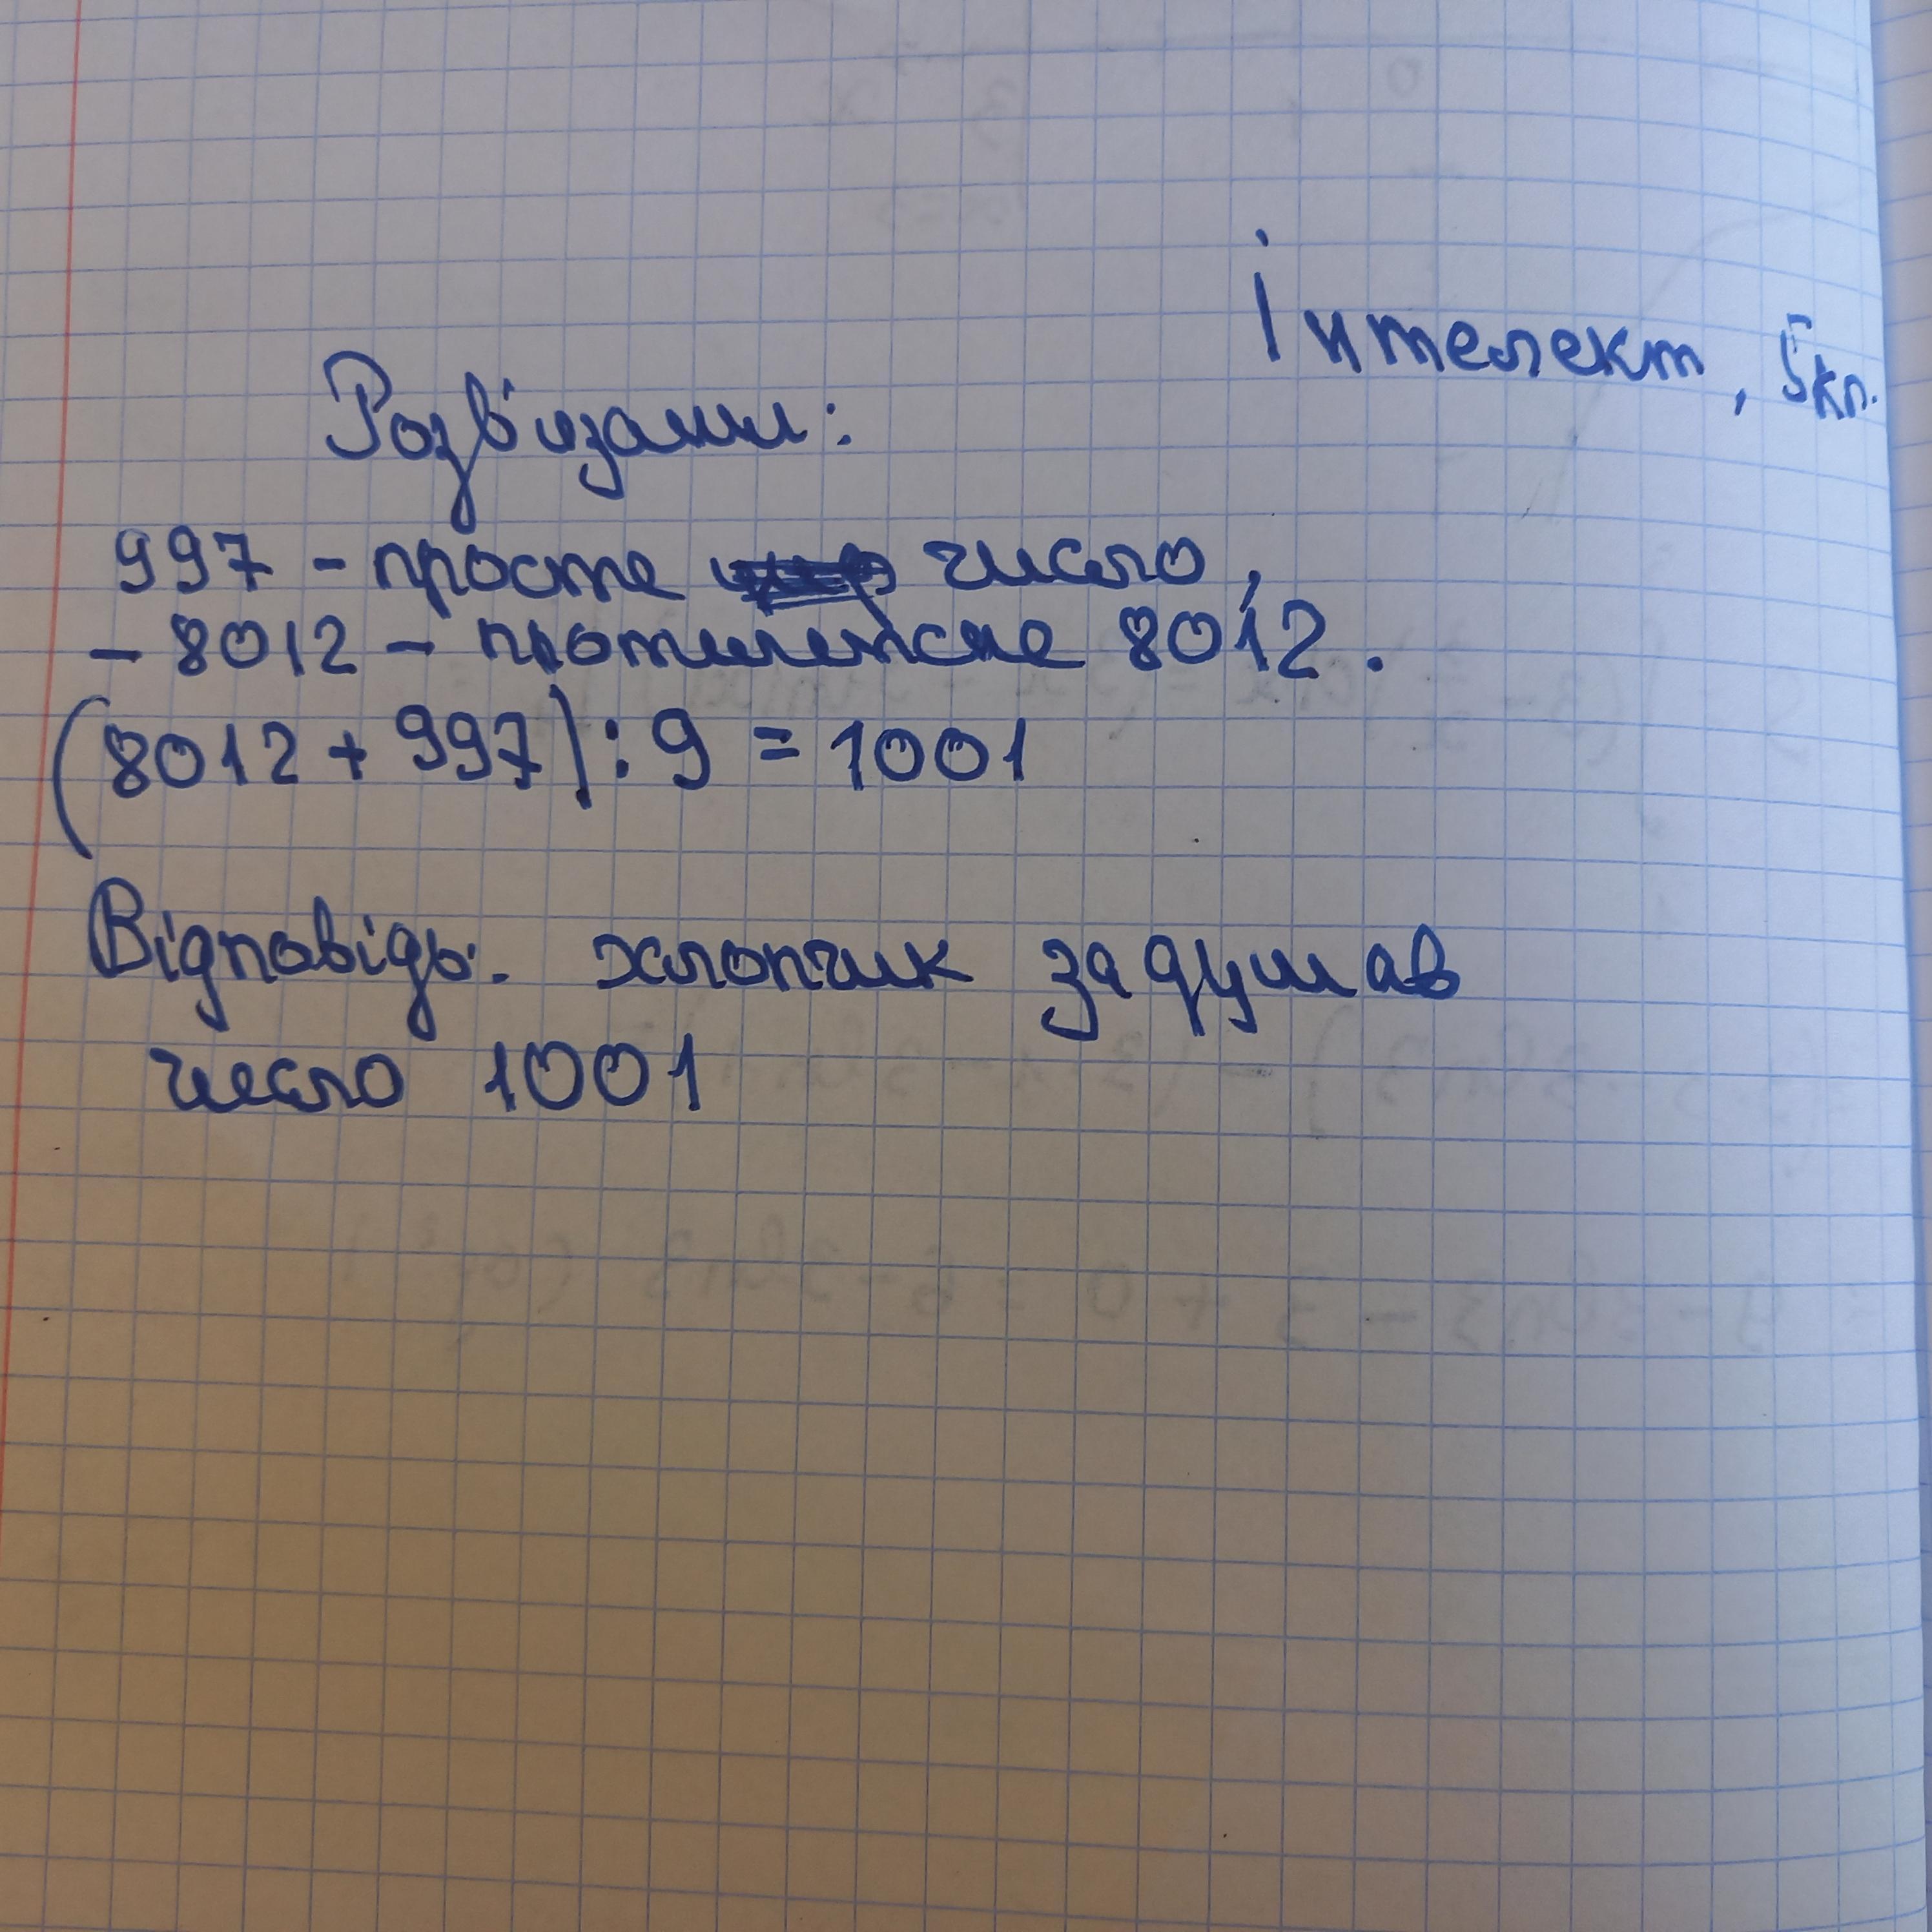 Інтелект, 5кл.
Розв'язання:
997 - просте число,
- 8012 - протилежне 8012.
(8012 + 997) : 9 = 1001
Відповідь. хлопчик задумав
число 1001